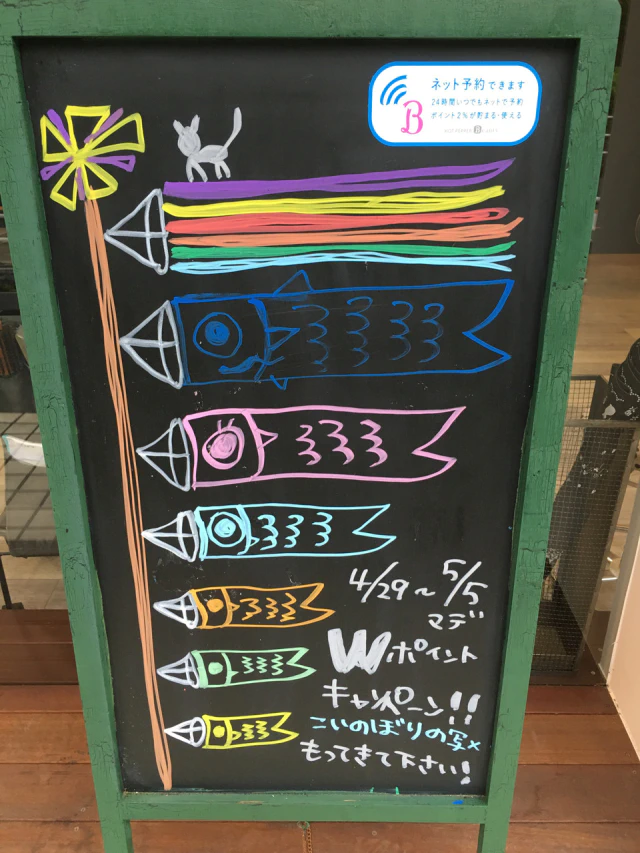 ネット予約できます
24時間いつでもネットで予約
ポイント2%が貯まる・使える
B
4/29〜5/5
マデ
Wポイント
キャンペーン!!
こいのぼりの写メ
もってきて下さい!